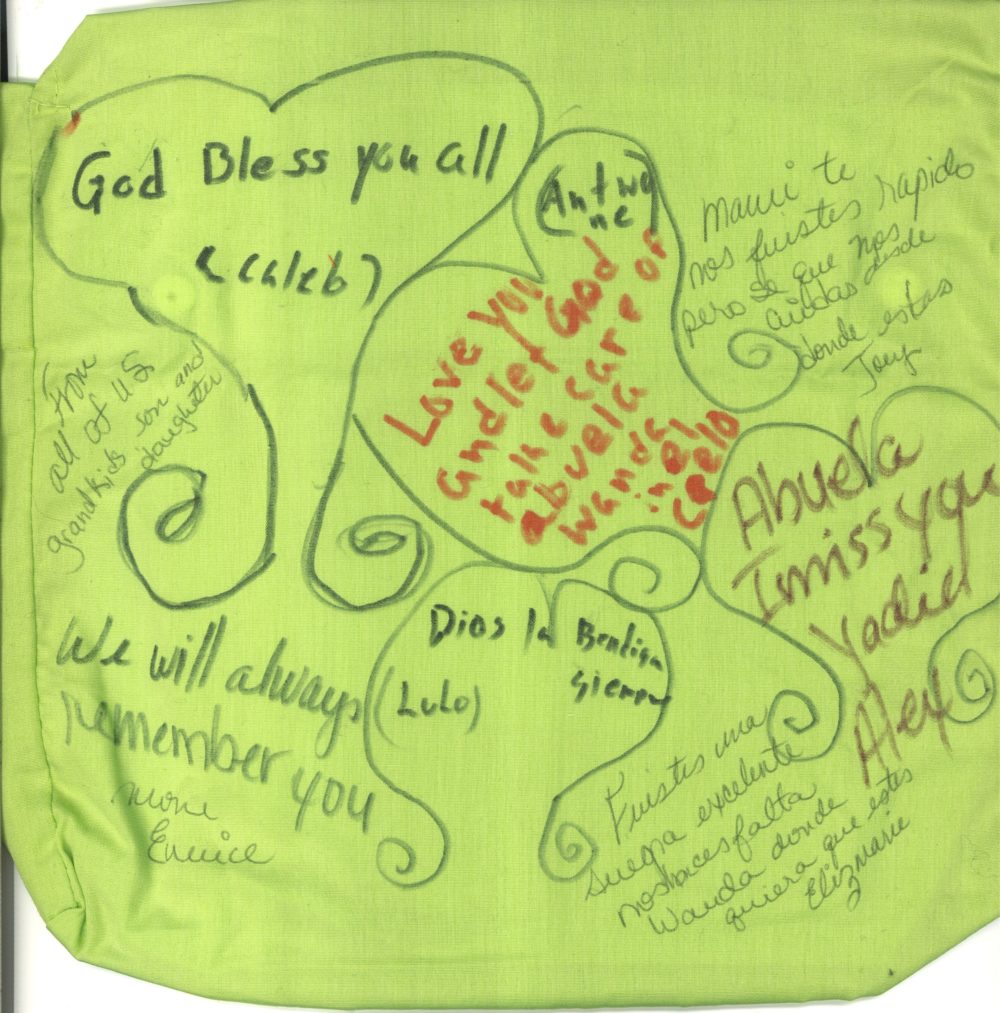 God Bless you all
(Caleb)
(Antwo
ne)
Love you
and let God
take care of
abuela
wanda
in el
cielo
Mami te
nos fuistes rapido
pero se que nos
cuidas desde
donde estas
Joey
From
all of us
grandkids son and
daughter
Abuela
I miss you
Yadiel
Alex
Dios la Bendiga
siempre
(Lulo)
We will always
remember you
Eunice
Fuistes una
suegra excelente
nos haces falta
Wanda donde
quiera que estes
Elizmarie